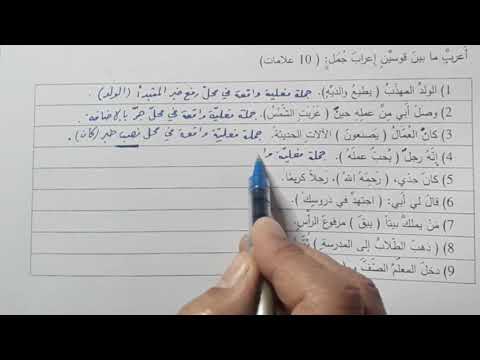 أعربْ ما بينَ قوسَيْنِ إعرابَ جُمَلٍ: ( 10 علامات)
1) الولدُ المهذّبُ ( يطيعُ والديْهِ). جملة فعلية واقعة في محلّ رفع خبر المبتدأ (الولد).
2) وصلَ أبي مِنْ عملِهِ حينَ ( غرَبَتِ الشّمْسُ). جملة فعليّة واقعة في محلّ جرّ بالإضافة.
3) كانَ العُمّالُ ( يصنعونَ ) الآلاتِ الحديثةَ. جملة فعليّة واقعة في محل نصب خبر (كان).
4) إنّهُ رجلٌ ( يُحبُّ عملَهُ). جملة فعليّة
5) كانَ جدّي، ( رَحِمَهُ اللهُ )، رَجلاً كريمًا.
6) قالَ لي أبي: ( اجتهدْ في دروسِكَ).
7) مَن يملكْ بيتاً ( يبقَ ) مرفوعَ الرأسِ.
8) ( ذهبَ الطّلابُ إلى المدرسةِ )
9) دخلَ المعلّمُ الصّفَّ